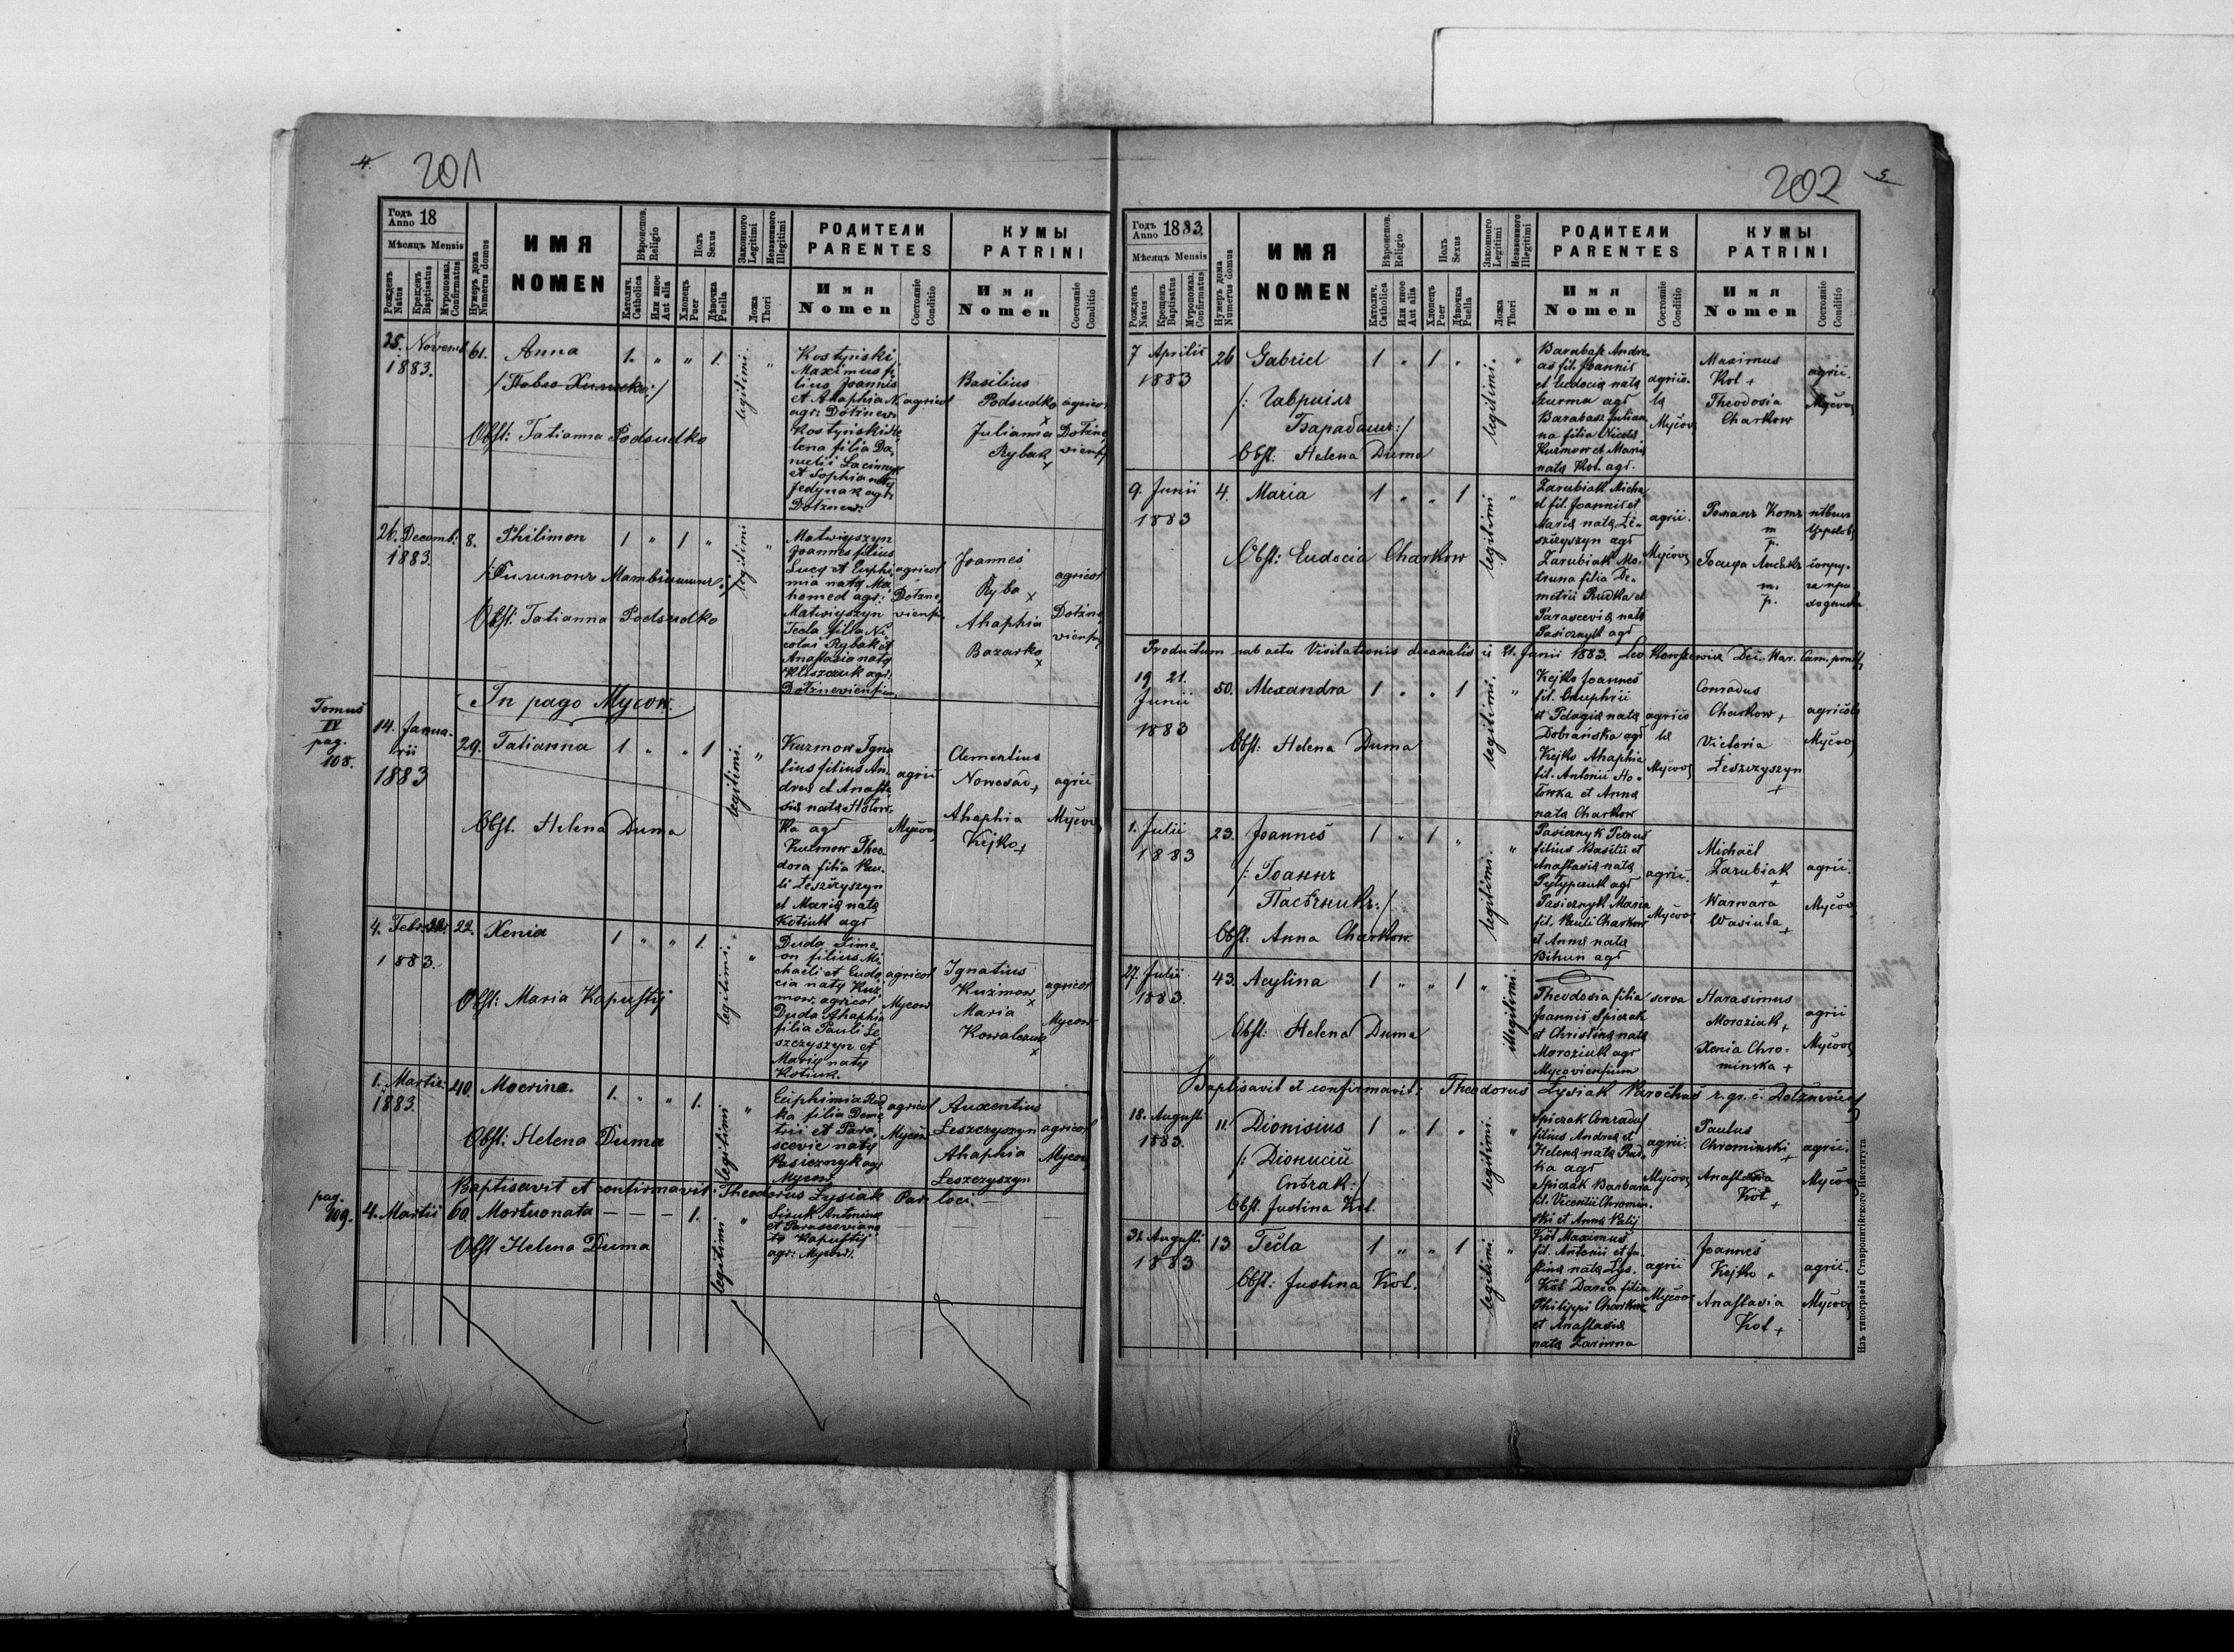 4.
201
Годъ Anno 18
Мѣсяцъ Mensis
Рожденъ Natus
Крещенъ Baptisatus
Муропомаз. Confirmatus
Нумеръ дома Numerus domus
ИМЯ
NOMEN
Вѣроиспов. Religio
Католич. Catholica
Или иное Aut alia
Полъ Sexus
Хлопець Puer
Дѣвочка Puella
Законного Legitimi
Незаконного Illegitimi
Ложа Thori
РОДИТЕЛИ
PARENTES
Имя
Nomen
Состояніе Conditio
КУМЫ
PATRINI
Имя
Nomen
Состояніе Conditio
25. Novemb. 61. Anna 1. " " 1. legitimi. "
1883.
Obst: Tatianna Podsudko
Kostyński
Maximus fi-
lius Joannis
et Ahaphia N.
agr: Dołżnew.
Kostyński He
lena filia Da-
nielii
et Sophia natę
Jedynak agr.
Dołżnew.
agricol
Basilius
Podsudko x
Julianna
Rybak x
agricol
Dołżne
viensis
26. Decemb: 8. Philimon 1 " 1 " legitimi "
1883.
Obst: Tatianna Podsudko
Matwiyszyn
Joannes filius
Lucę et Euphi
mia natę Ma
homed agr:
Matwiyszyn
Tecla filia Ni
colai Rybak et
Anastasia natę
Kliszczuk agr.
Dołżneviensium
agricol
Dołżne
viensis
Joannes
Ryba x
Ahaphia
Bazarko x
agricol
Dołżne
viensis
In pago Mycow.
Tomus
IV
pag.
108.
14. Janua-
rii
1883
29. Tatianna 1 " " 1 legitimi. "
Obst. Helena Duma
Kuzmow Igna
tius filius An-
dreę et Anasta
sia nata Hołow-
ka agr
Kuzmow Theo-
dora filia Pau-
li Leszczyszyn
et Maria nata
Kotiuk agr
agric
Mycov
Clementius
Nowosad +
Ahaphia
Kejko +
agric
Mycov
4. Febr. 22. Xenia 1 " " 1. legitimi. "
1883.
Obst: Maria Kapustij
Duda Sime-
on filius Mi
chaeli et Eudo
cia natę Kuz
mow. agricol
Duda Ahaphia
filia Pauli Le
szczyszyn et
Marię natę
Kotiuk.
agricol
Mycow
Ignatius
Kuzmow x
Maria
Kowalczuk x
agricol
Mycow
1. Martii. 40. Macrina. 1. " " 1. legitimi "
1883.
Obst: Helena Duma
Euphimia Rud
ka filia Deme
trii et Para
scevię natę
Pasicznyk agr
Mycow
agricol
Mycow
Auxentius
Leszczyszyn
Ahaphia
Leszczyszyn
agricol
Mycow
Baptisavit et confirmavit: Theodorus Lysiak Par. loci.
pag.
109.
4. Martii 60. Mortuonata — — — 1. legitimi "
Obst Helena Duma
Siruk Antonius
et Parascevia na
ta Kapustij
agr: Mycow.
202
5.
Годъ Anno 1883.
Мѣсяцъ Mensis
Рожденъ Natus
Крещенъ Baptisatus
Муропомаз. Confirmatus
Нумеръ дома Numerus domus
ИМЯ
NOMEN
Вѣроиспов. Religio
Католич. Catholica
Или иное Aut alia
Полъ Sexus
Хлопець Puer
Дѣвочка Puella
Законного Legitimi
Незаконного Illegitimi
Ложа Thori
РОДИТЕЛИ
PARENTES
Имя
Nomen
Состояніе Conditio
КУМЫ
PATRINI
Имя
Nomen
Состояніе Conditio
7 Aprilis 26 Gabriel 1 " 1 " legitimi. "
1883
/: Гавриілъ
Барабашъ :/
Obst: Helena Duma
Barabasz Andre-
as fil. Joannis
et Eudocia nata
Szurma agr
Barabasz Julian
na filia Nicetę
Kuzmow et Maria
nata Kot. agr.
agrico-
la
Mycov
Maximus
Kot +
Theodosia
Charkow
agric.
Mycov
9. Junii 4. Maria 1 " " 1 legitimi "
1883
Obst: Eudocia Charkow
Zarubiak Micha
el fil. Joannis et
Maria nata Le-
szczyszyn agr
Zarubiak Mo-
truna filia De-
metrii Rudka et
Parascevia nata
Pasicznyk agr
agric.
Mycov
Романъ Котъ
m
p.
m.
p.
Productum sub actu Visitationis decanalis d. 21. Junii 1883.
19 21.
Junii
1883
50. Alexandra 1 " " 1 legitimi. "
Obst: Helena Duma
Kejko Joannes
fil. Onuphrii
et Pelagia nata
Dobrańska agr
Kejko Ahaphia
fil. Antonii Ho-
łowka et Anna
nata Charkow
agrico
la
Mycov
Conradus
Charkow +
Victoria
Leszczyszyn
+
agricola
Mycov
1. Julii 23. Joannes 1 " 1 " legitimi. "
1883
/: Іоаннъ
Пасѣчникъ :/
Obst: Anna Charkow
Pasicznyk Petrus
filius Basilii et
Anastasia nata
agr
Pasicznyk Maria
fil. Pauli Charkow
et Anna nata
Bihun agr
agric.
Mycov
Michaël
Zarubiak
+
Warwara
Wasiuta +
agric.
Mycov
27. Julii 43. Acylina 1 " " 1 " illegitimi.
1883.
Obst: Helena Duma
Theodosia filia
Joannis Spiczak
et Christina nata
Moroziuk agr
Mycoviensium
serva
Harasimus
Moroziuk +
Xenia Chro-
minska +
agric
Mycov
Baptisavit et confirmavit: Theodorus Lysiak Parochus r. gr. c. Dołżnevien
18. Augusti 11. Dionisius 1 " 1 " legitimi. "
1883.
/: Діонисій
Спѣчак :/
Obst. Justina Kot.
Spiczak Conradus
filius Andreę et
Helena nata Rud-
ka agr
Spiczak Barbara
fil. Vicentii Chromin-
ski et Anna Palij
agric.
Mycov
Paulus
Chrominski +
Anastasia
Kot
+
agric.
Mycov
31. Augusti 13 Tecla 1 " " 1 legitimi. "
1883
Obst: Justina Kot.
Kot Maximus
fil. Antonii et Ju-
stina nata Lys.
Kot Daria filia
Philippi Charkow
et Anastasia
nata Zariwna
agric
Mycov
Joannes
Kejko +
Anastasia
Kot +
agric.
Mycov
Изъ типографіи Ставропигійского Института